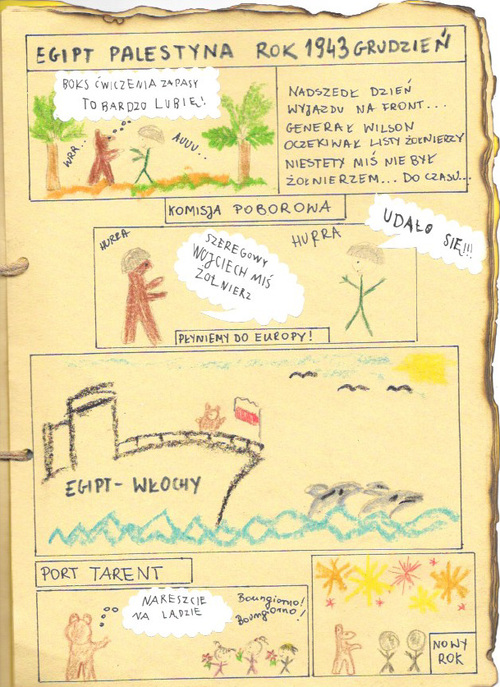 EGIPT PALESTYNA ROK 1943 GRUDZIEŃ
BOKS ĆWICZENIA ZAPASY
TO BARDZO LUBIĘ!
WRR...
AUUU...
NADSZEDŁ DZIEŃ
WYJAZDU NA FRONT...
GENERAŁ WILSON
OCZEKIWAŁ LISTY ŻOŁNIERZY
NIESTETY MIŚ NIE BYŁ
ŻOŁNIERZEM... DO CZASU...
KOMISJA POBOROWA
HURRA
SZEREGOWY
WOJCIECH MIŚ
ŻOŁNIERZ
HURRA
UDAŁO SIĘ!!!
PŁYNIEMY DO EUROPY!
EGIPT - WŁOCHY
PORT TARENT
NARESZCIE
NA LĄDZIE
Boungiorno!
Boungiorno!
NOWY
ROK